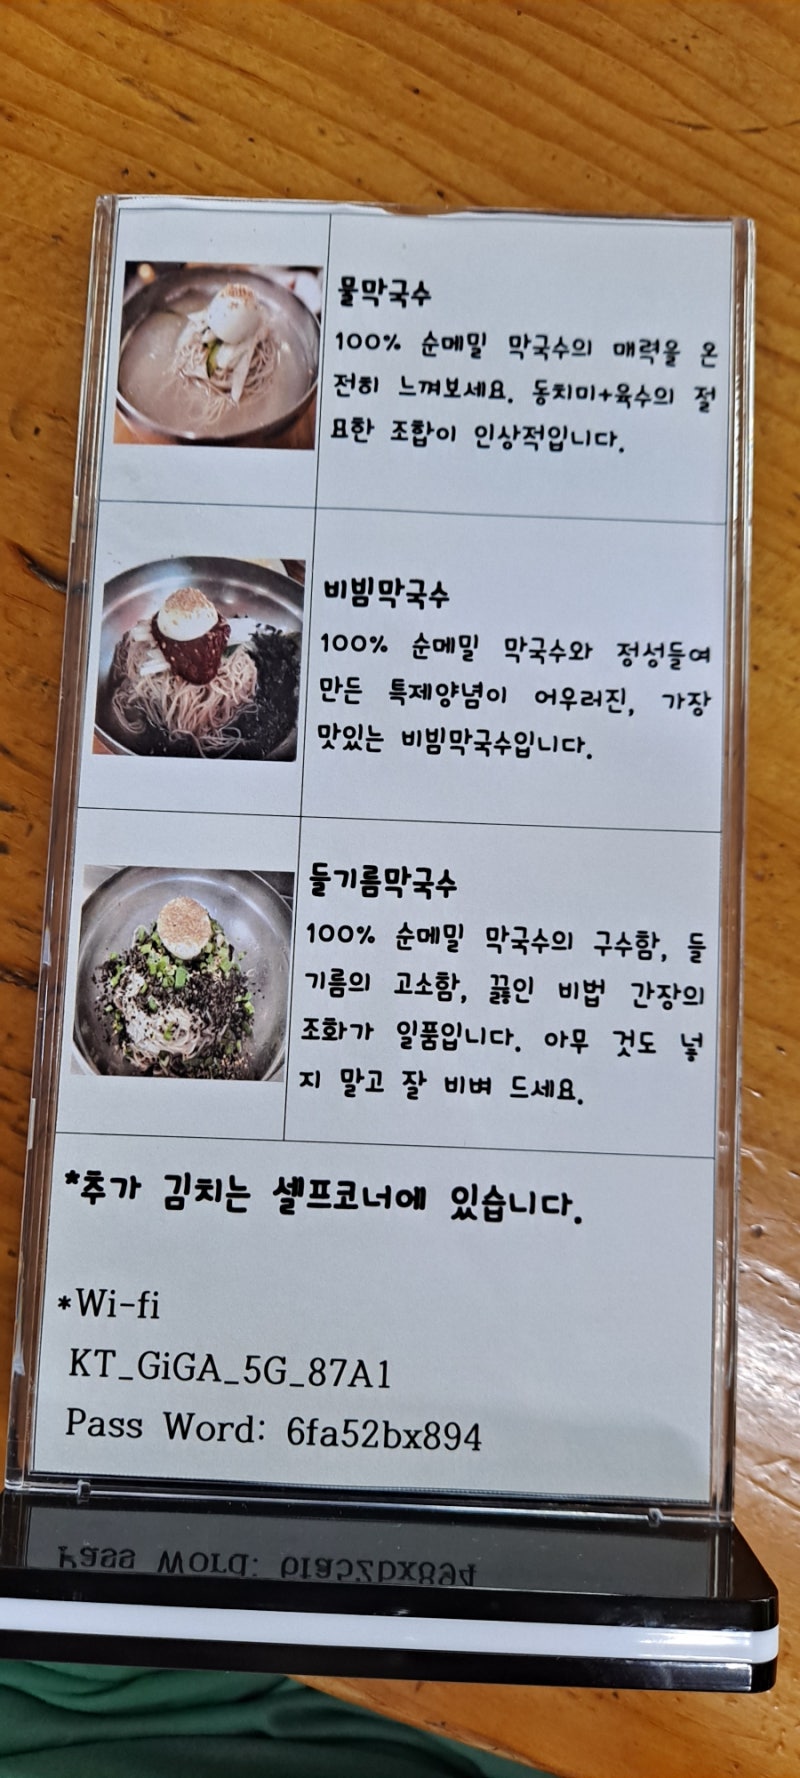 물막국수
100% 순메밀 막국수의 매력을 온
전히 느껴보세요. 동치미+육수의 절
묘한 조합이 인상적입니다.
비빔막국수
100% 순메밀 막국수와 정성들여
만든 특제양념이 어우러진, 가장
맛있는 비빔막국수입니다.
들기름막국수
100% 순메밀 막국수의 구수함, 들
기름의 고소함, 끓인 비법 간장의
조화가 일품입니다. 아무 것도 넣
지 말고 잘 비벼 드세요.
*추가 김치는 셀프코너에 있습니다.
*Wi-fi
KT_GiGA_5G_87A1
Pass Word: 6fa52bx894